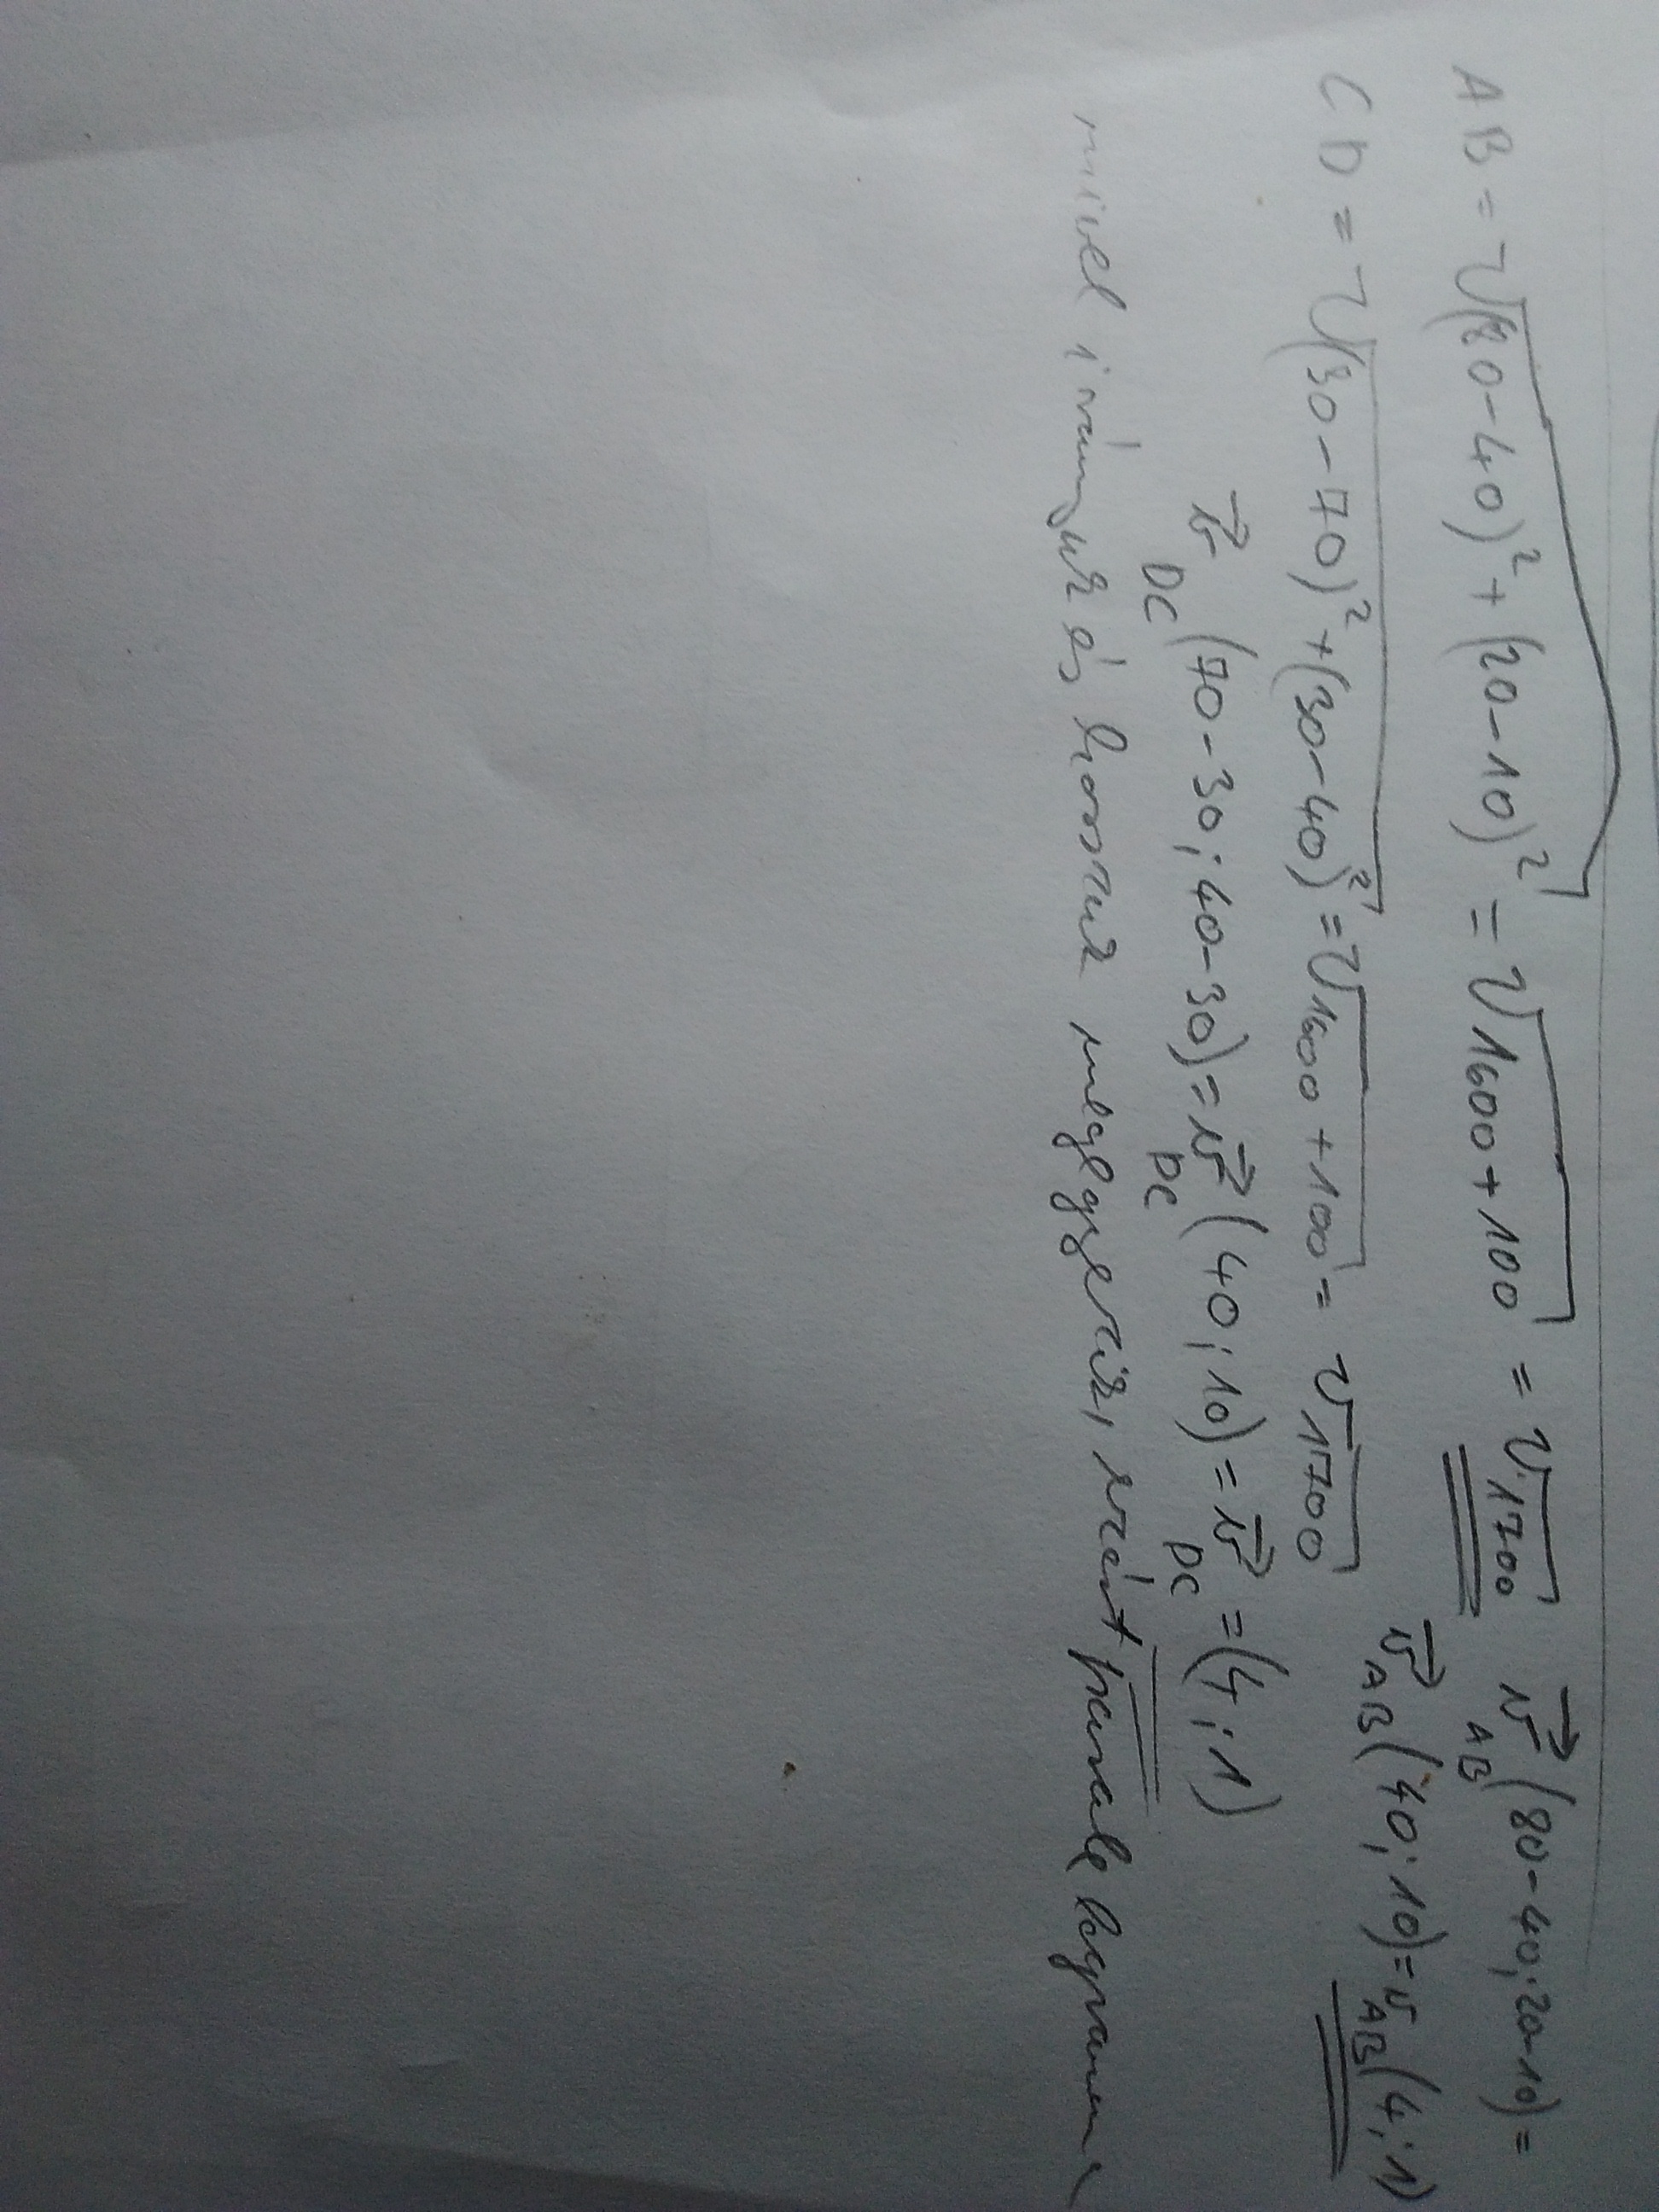 AB = √(80-40)² + (20-10)² = √1600+100 = √1700 v⃗AB (80-40; 20-10) =
v⃗AB (40; 10) = vAB (4; 1)
CD = √(30-70)² + (30-40)² = √1600+100 = √1700
v⃗DC (70-30; 40-30) = v⃗DC (40; 10) = v⃗DC = (4; 1)
mivel irányuk és hosszuk megegyezik, ezért paralelogramma